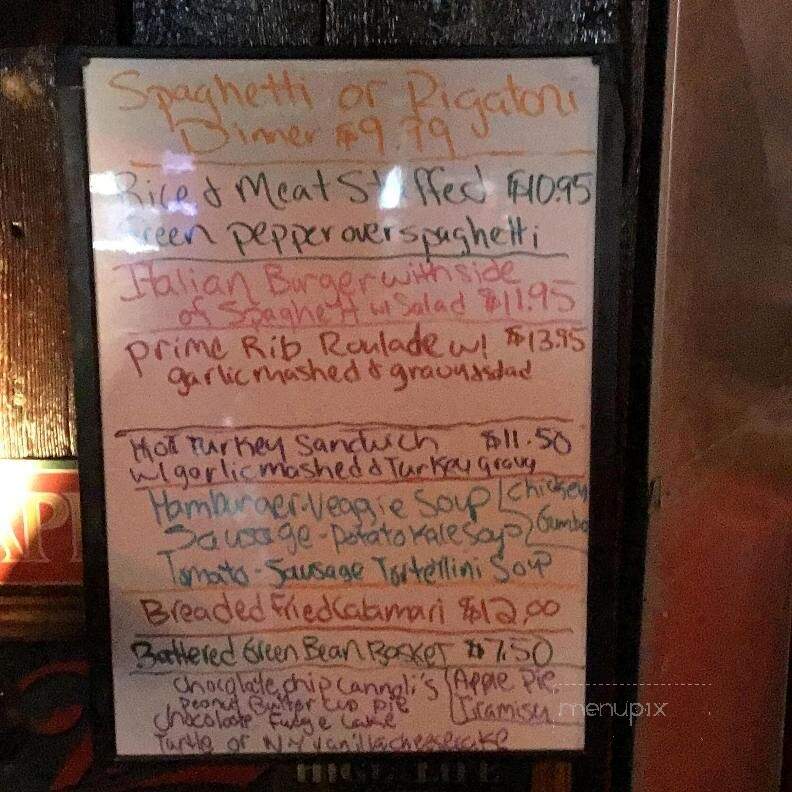 Spaghetti or Rigatoni
Dinner $9.99
Rice & Meat Stuffed $10.95
Green pepper over spaghetti
Italian Burger with side
of Spaghetti w/ Salad $11.95
Prime Rib Roulade w/ $13.95
garlic mashed &
Hot Turkey Sandwich $11.50
w/ garlic mashed & Turkey gravy
Hamburger-Veggie Soup Chicken
Sausage-Potato Kale Soup Gumbo
Tomato-Sausage Tortellini Soup
Breaded Fried Calamari $12.00
Battered Green Bean Basket $7.50
Chocolate chip Cannoli's Apple Pie
Peanut Butter Cup Pie Tiramisu
Chocolate Fudge Cake
Turtle or NY vanilla cheesecake
menupix
HIGH LIFE